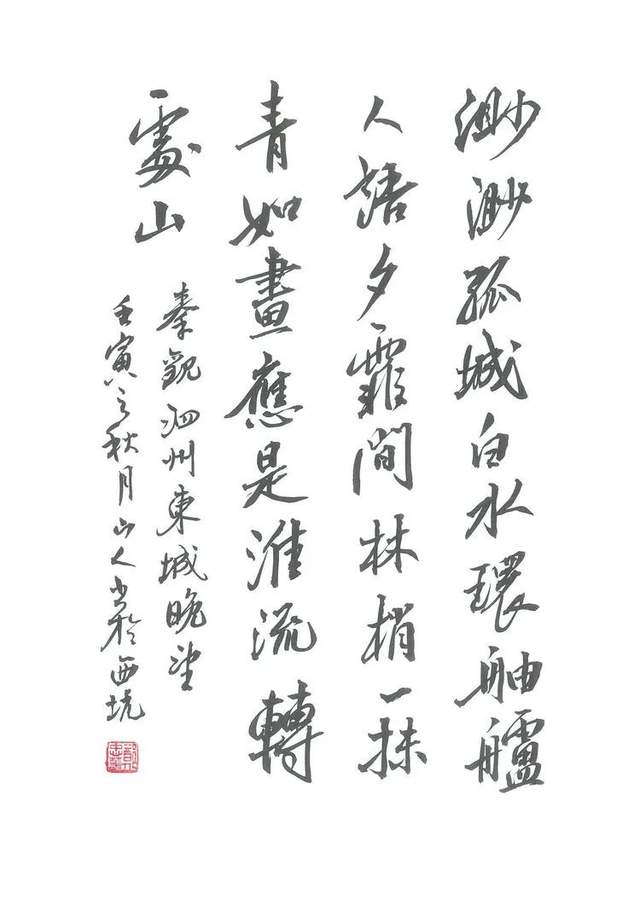 渺渺孤城白水環舳艫
人語夕霏間林梢一抹
青如畫應是淮流轉
處山
秦觀泗州東城晚望
壬寅之秋月山人书於西坑